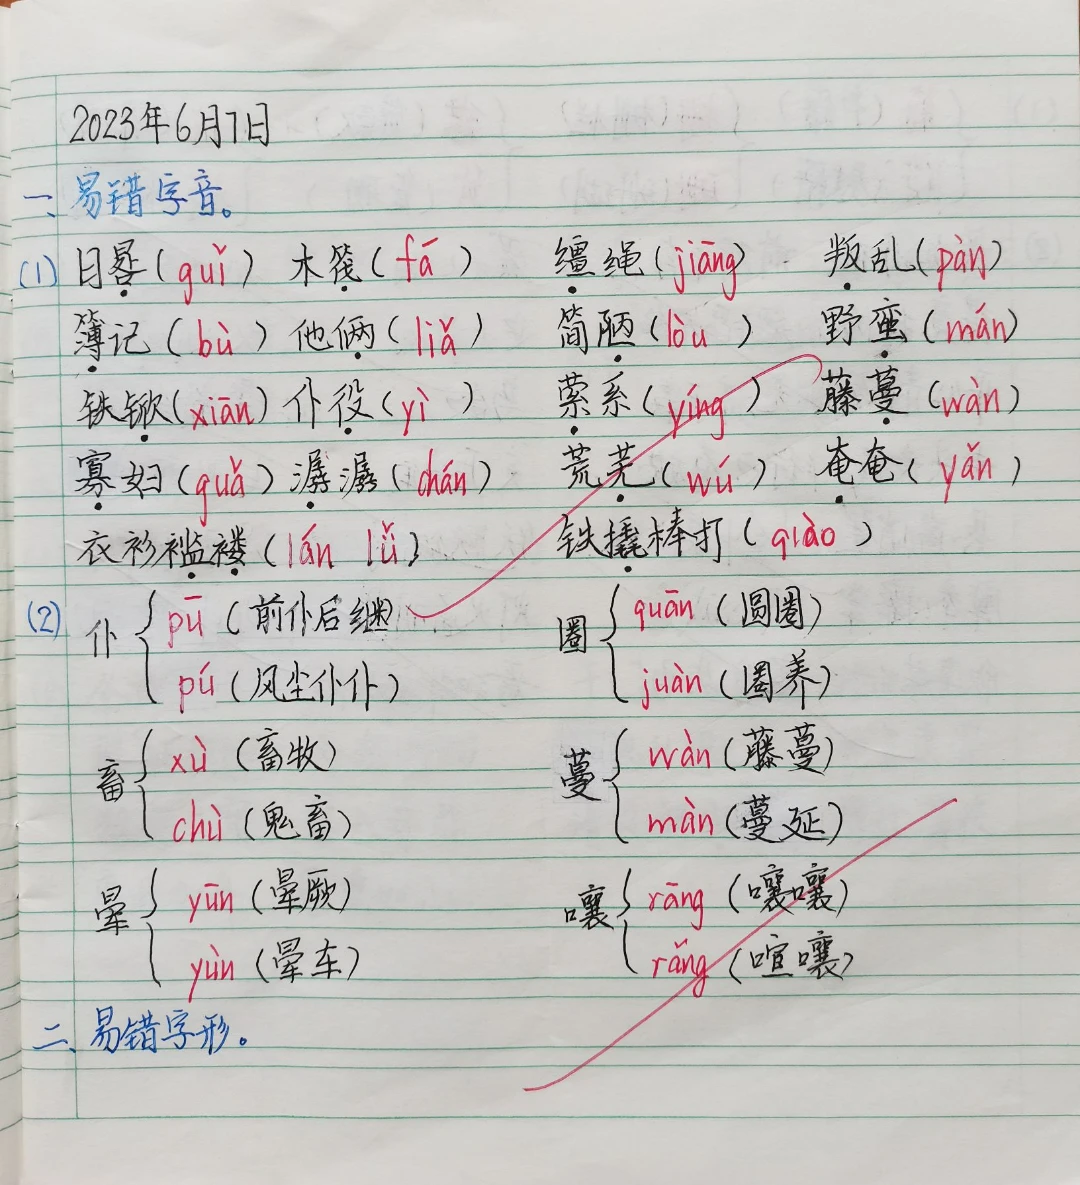 2023年6月7日
一、易错字音。
(1) 日晷(guǐ) 木筏(fá) 缰绳(jiāng) 叛乱(pàn)
簿记(bù) 他俩(liǎ) 简陋(lòu) 野蛮(mán)
铁锨(xiān) 仆役(yì) 萦系(yíng) 藤蔓(wàn)
寡妇(guǎ) 潺潺(chán) 荒芜(wú) 奄奄(yǎn)
衣衫褴褛(lán lǚ) 铁撬棒打(qiào)
(2) 仆 pū (前仆后继) 圈 quān (圆圈)
pú (风尘仆仆) juàn (圈养)
畜 xù (畜牧) 蔓 wàn (藤蔓)
chù (鬼畜) màn (蔓延)
晕 yūn (晕厥) 嚷 rāng (嚷嚷)
yùn (晕车) rǎng (喧嚷)
二、易错字形。